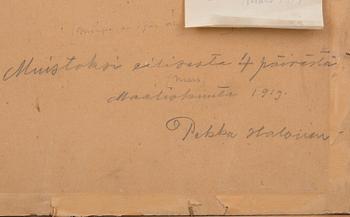 Muistoksi eilisestä 4 päivästä,
Maaliskuuta 1919.
Pekka Halonen